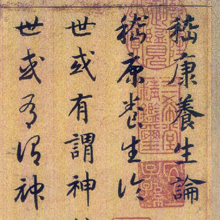 嵇康養生論
嵇康養生論
世或有謂神
世或有謂神